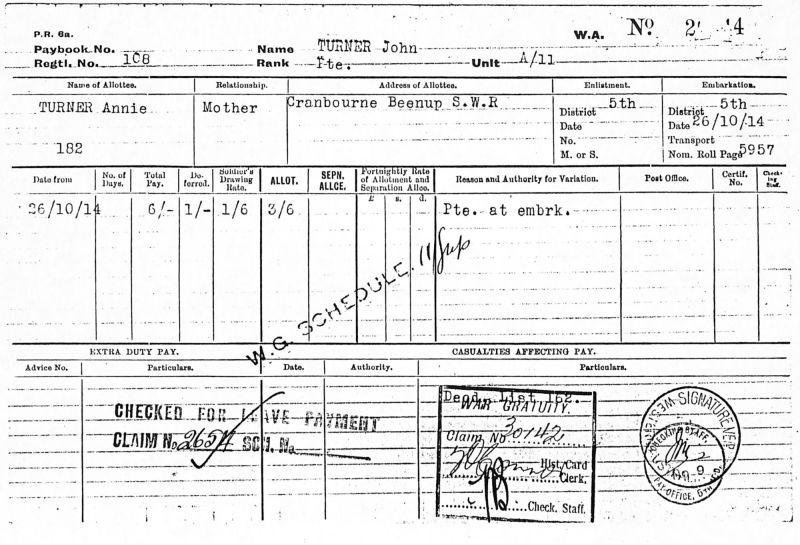 P.R. 6a.
W.A. No 2 4
Paybook No.
Name TURNER John
Regtl. No. 108
Rank Pte. Unit A/11
Name of Allottee. Relationship. Address of Allottee. Enlistment. Embarkation.
TURNER Annie Mother Cranbourne Beenup S.W.R
District 5th District 5th
Date Date 26/10/14
182 No. Transport
M. or S. Nom. Roll Page 5957
Date from No. of Days. Total Pay. De-ferred. Soldier's Drawing Rate. ALLOT. SEPN. ALLCE. Fortnightly Rate of Allotment and Separation Allce. £ s. d. Reason and Authority for Variation. Post Office. Certif. No. Check-ing Staff.
26/10/14 6/- 1/- 1/6 3/6 Pte. at embrk.
W.G. SCHEDULE. 11
EXTRA DUTY PAY. CASUALTIES AFFECTING PAY.
Advice No. Particulars. Date. Authority. Particulars.
CHECKED FOR LEAVE PAYMENT
CLAIM No 2654 SCH. No
Dead List 162.
WAR GRATUITY.
Claim No 30142
Hist. Card
Clerk.
Check. Staff.
SIGNATURE VER
CHECKING STAFF.
PAY OFFICE, 5TH M.D.